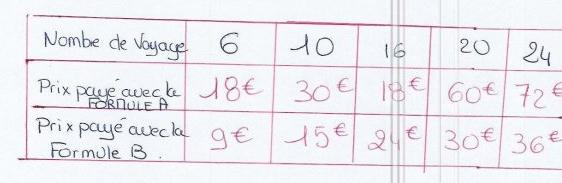 Nombre de Voyage 6 10 16 20 24
Prix payé avec la FORMULE A 18€ 30€ 18€ 60€ 72€
Prix payé avec la Formule B. 9€ 15€ 24€ 30€ 36€